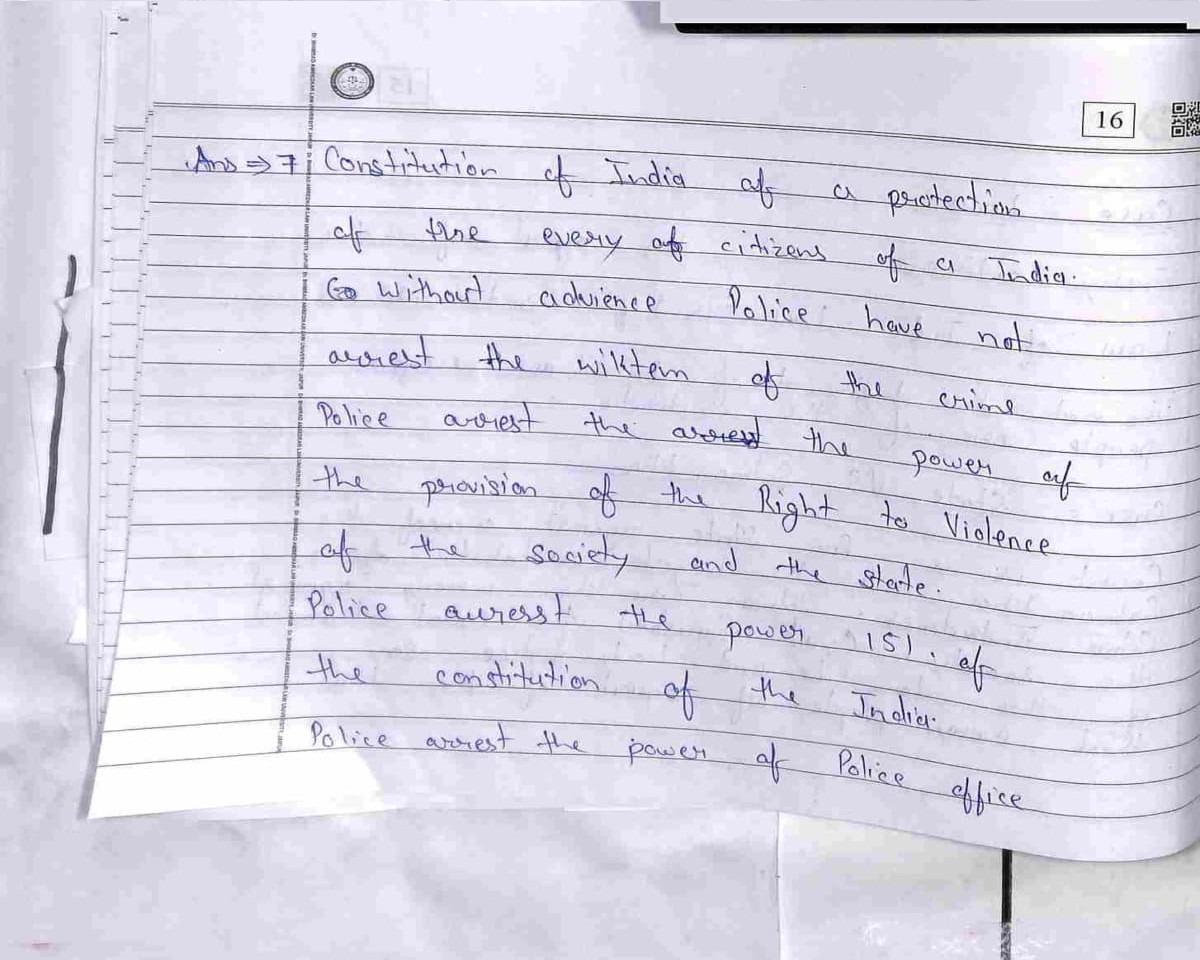 16
Ans ⇒ 7 Constitution of India of a protection
of the every of citizens of a India.
without advience Police have not
arrest the wiktem of the crime
Police arrest the arrest the power of
the provision of the Right to Violence
of the society and the state.
Police auresst the power 151. of
the constitution of the India.
Police arrest the power of Police office